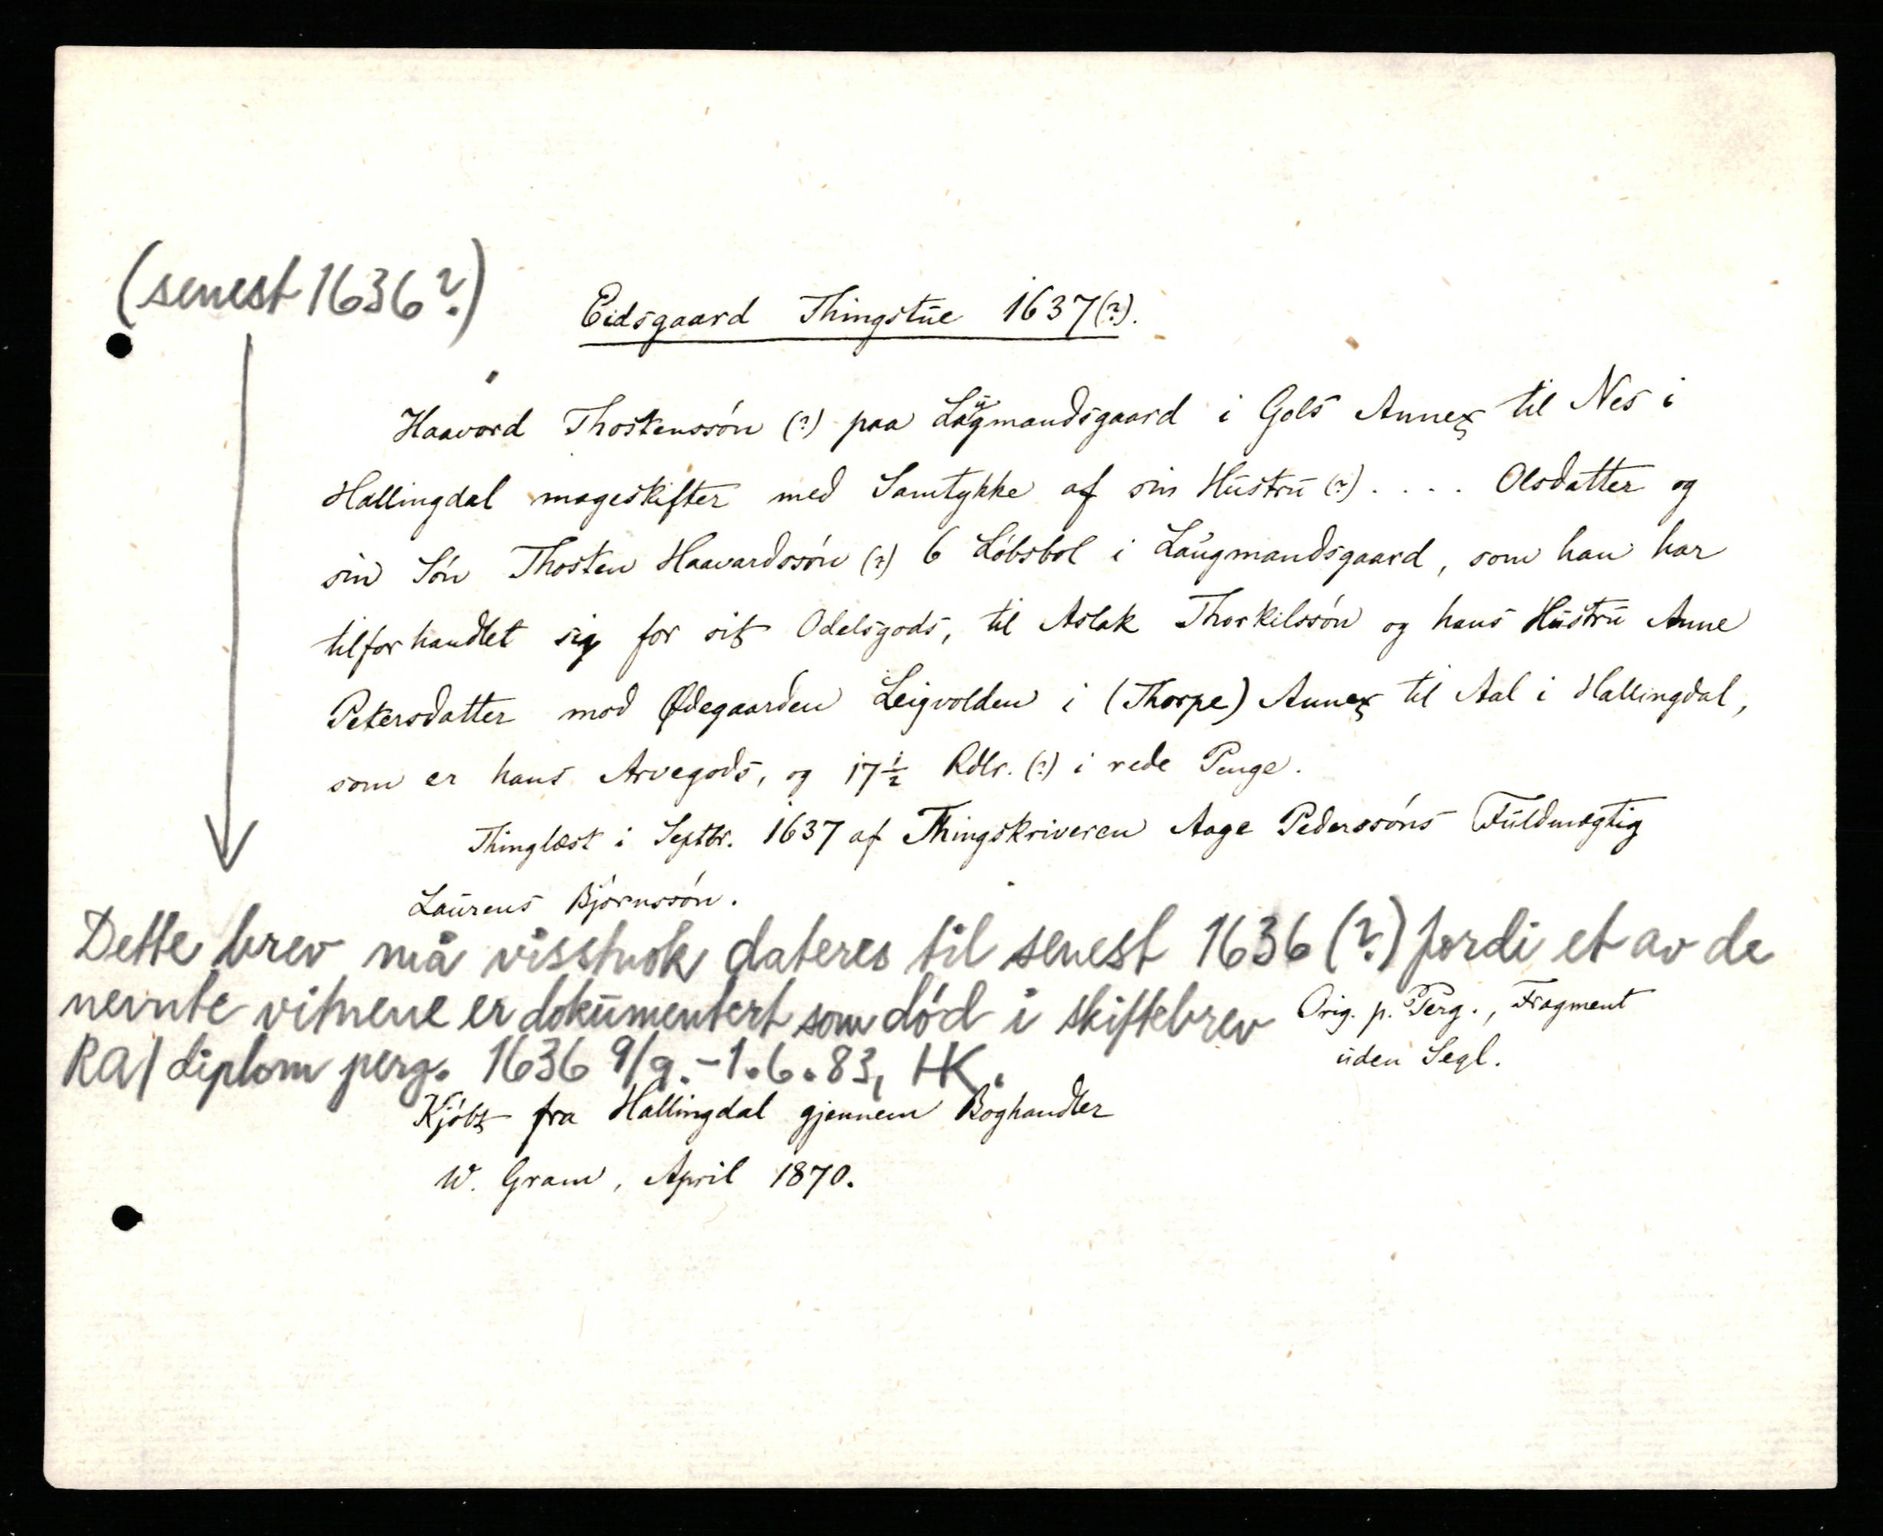 (senest 1636?)
Eidsgaard Thingstue 1637(?).
Haavard Thostenssön (?) paa Laugmandsgaard i Gols Annex til Nes i
Hallingdal mageskifter med Samtykke af sin Hustru (?) . . . . Olsdatter og
sin Sön Thosten Haavardssön (?) 6 Löbsbol i Laugmandsgaard, som han har
tilforhandlet sig for sit Odelsgods, til Aslak Thorkilssön og hans Hustru Anne
Petersdatter mod Ødegaarden Leigvolden i (Thorpe) Annex til Aal i Hallingdal,
som er hans Arvegods, og 17½ Rdlr. (?) i rede Penge.
Thinglæst i Septbr. 1637 af Thingskriveren Aage Pederssöns Fuldmægtig
Laurens Björnssön.
Dette brev må visstnok dateres til senest 1636 (?) fordi et av de
nevnte vitnene er dokumentert som død i skiftebrev
RA/diplom perg. 1636 9/9. - 1.6.83, HK.
Orig. p. Perg., Fragment
uden Segl.
Kjöbt fra Hallingdal gjennem Boghandler
W. Gram, April 1870.